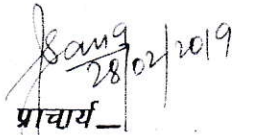 28/02/2019
प्राचार्य